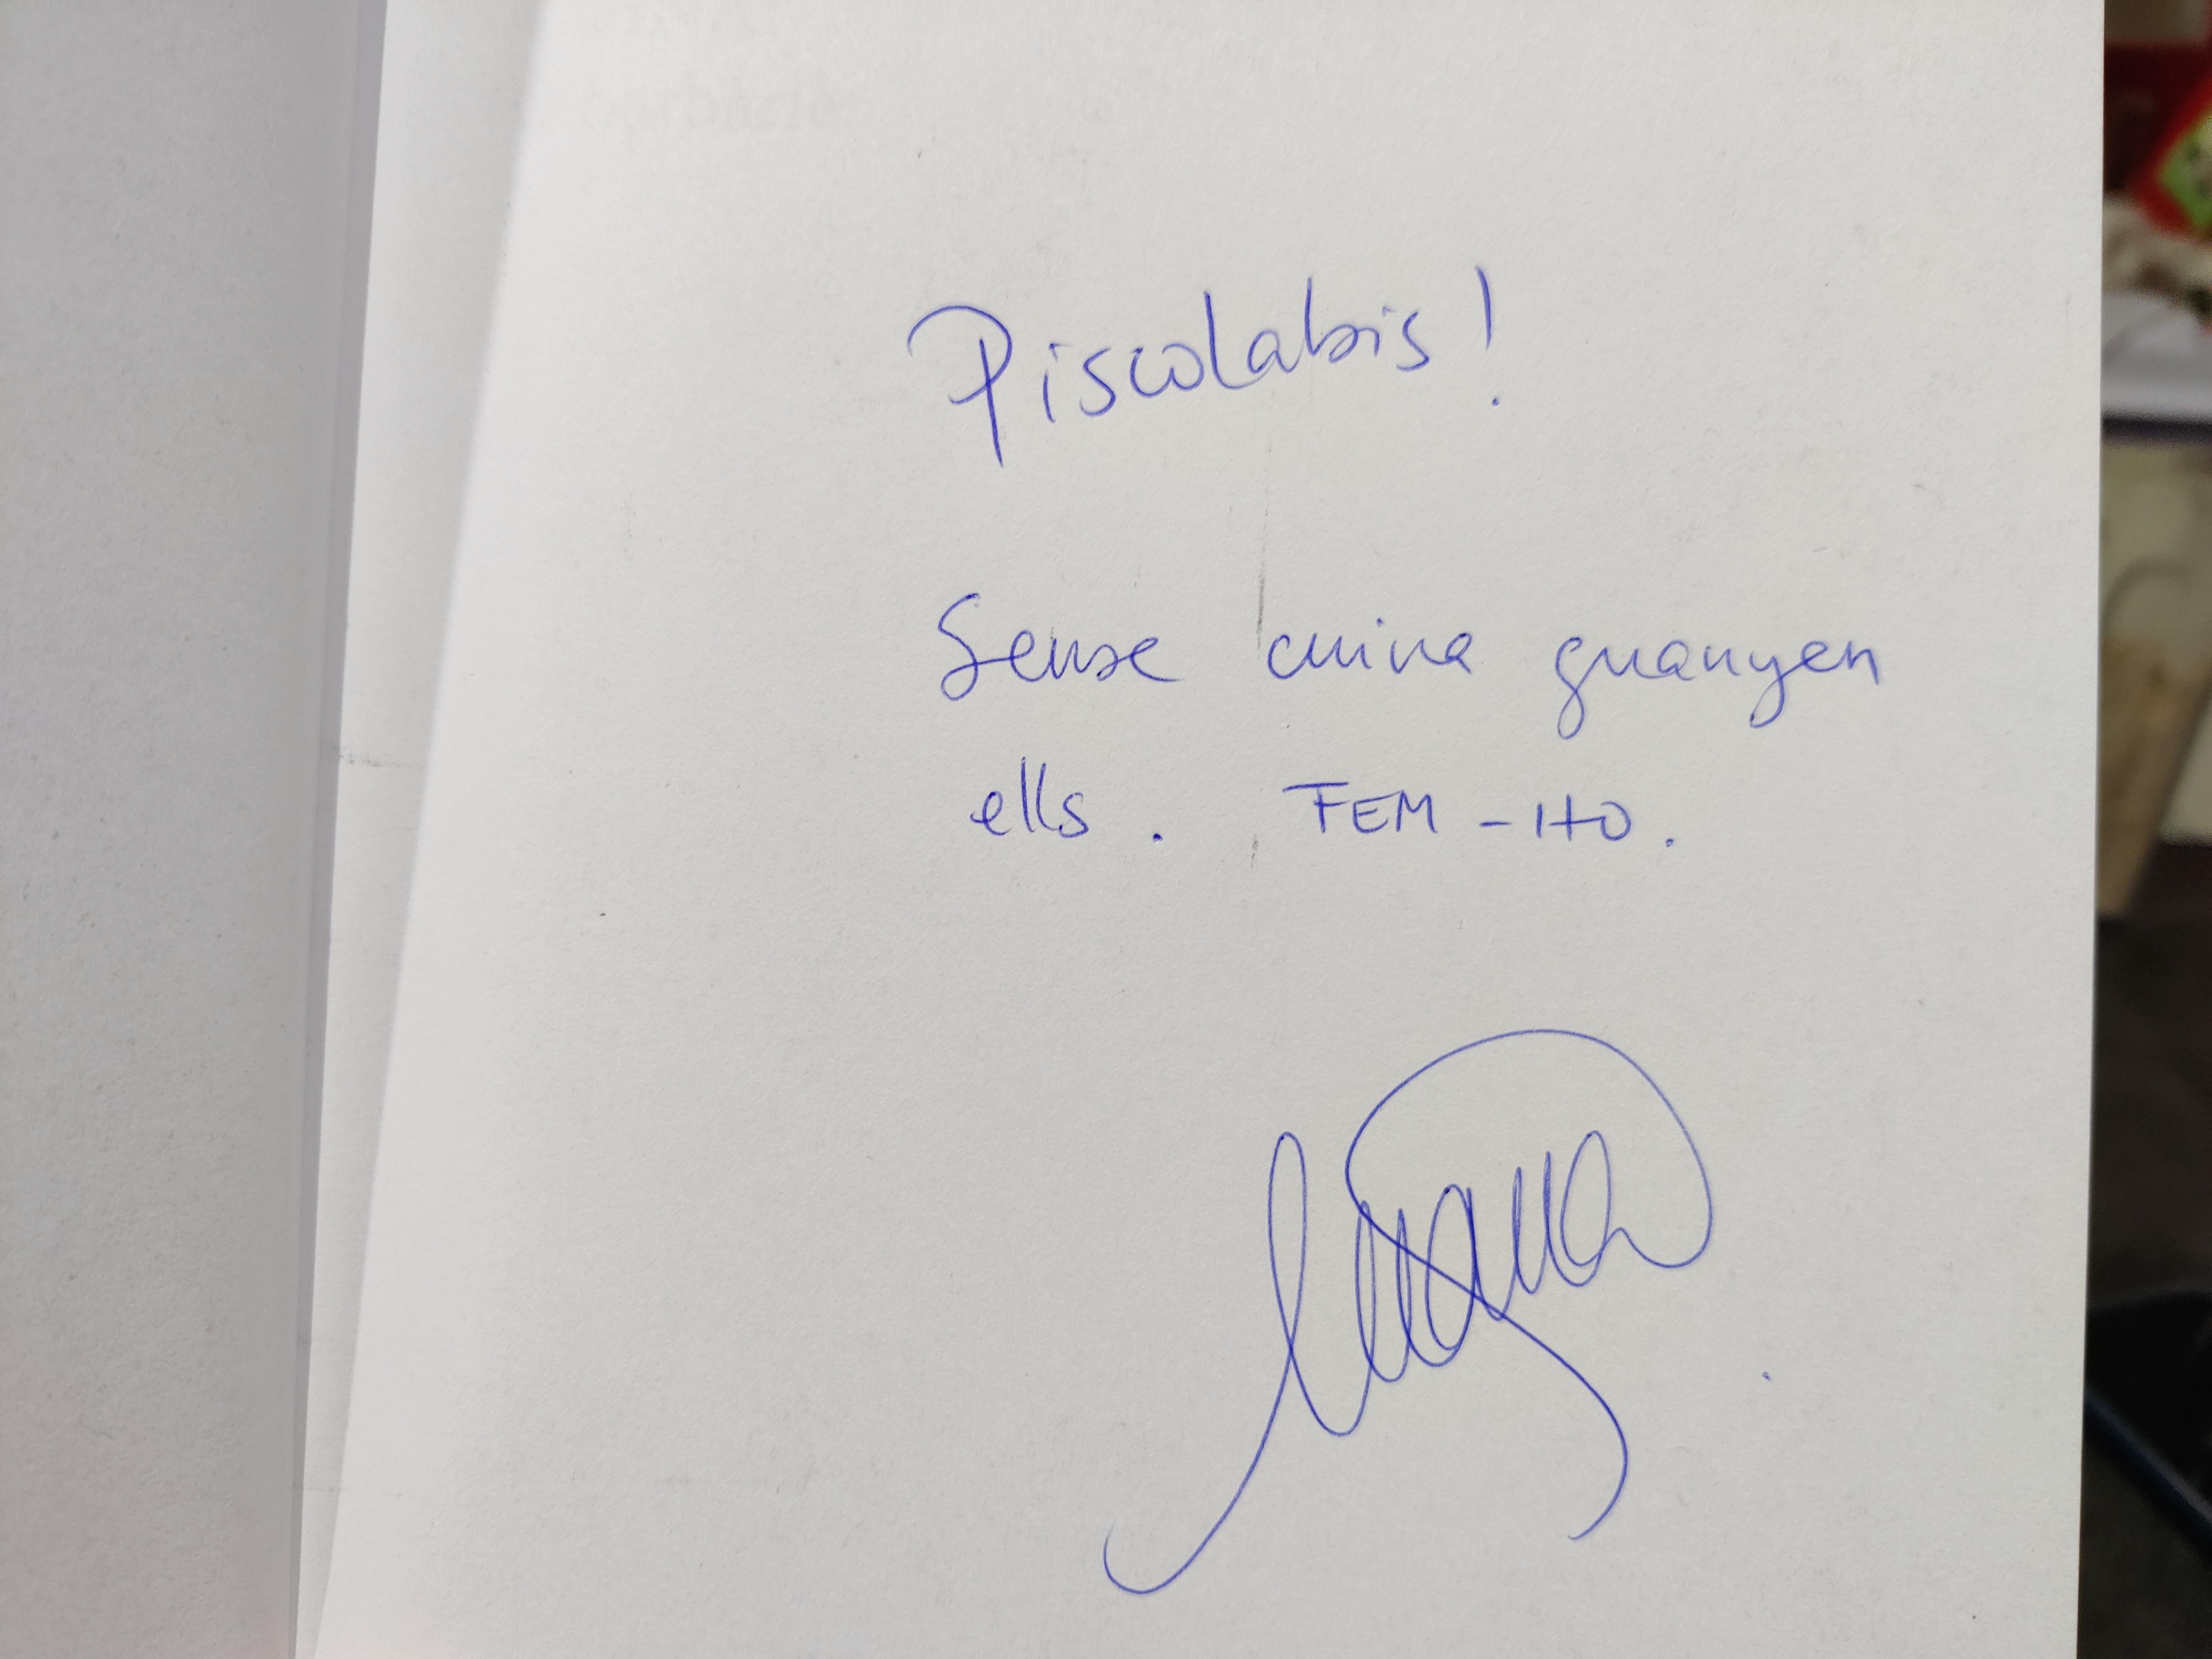 Piscolabis!
Sense cuina guanyen
ells. FEM-HO.